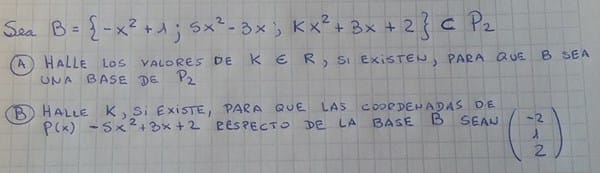 Sea B = {-x² + 1 ; 5x² - 3x ; Kx² + 3x + 2} ⊂ P₂
(A) HALLE LOS VALORES DE K ∈ R, SI EXISTEN, PARA QUE B SEA
UNA BASE DE P₂
(B) HALLE K, SI EXISTE, PARA QUE LAS COORDENADAS DE
P(x) -5x² + 3x + 2 RESPECTO DE LA BASE B SEAN (-2
1
2)